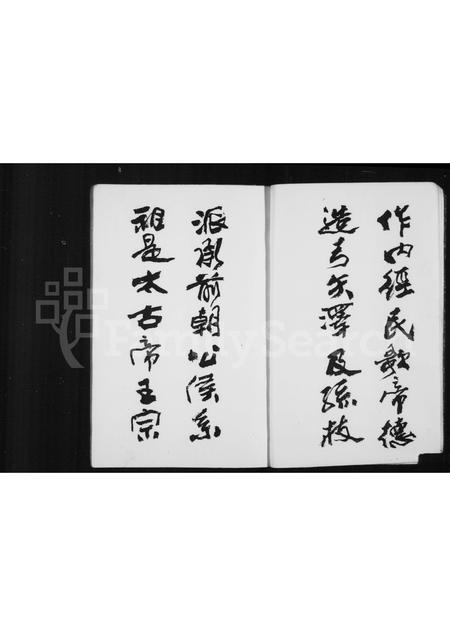 作內經民歌帝德
造弓矢澤及孫枝
派承前朝公侯系
祖是太古帝王宗
FamilySearch